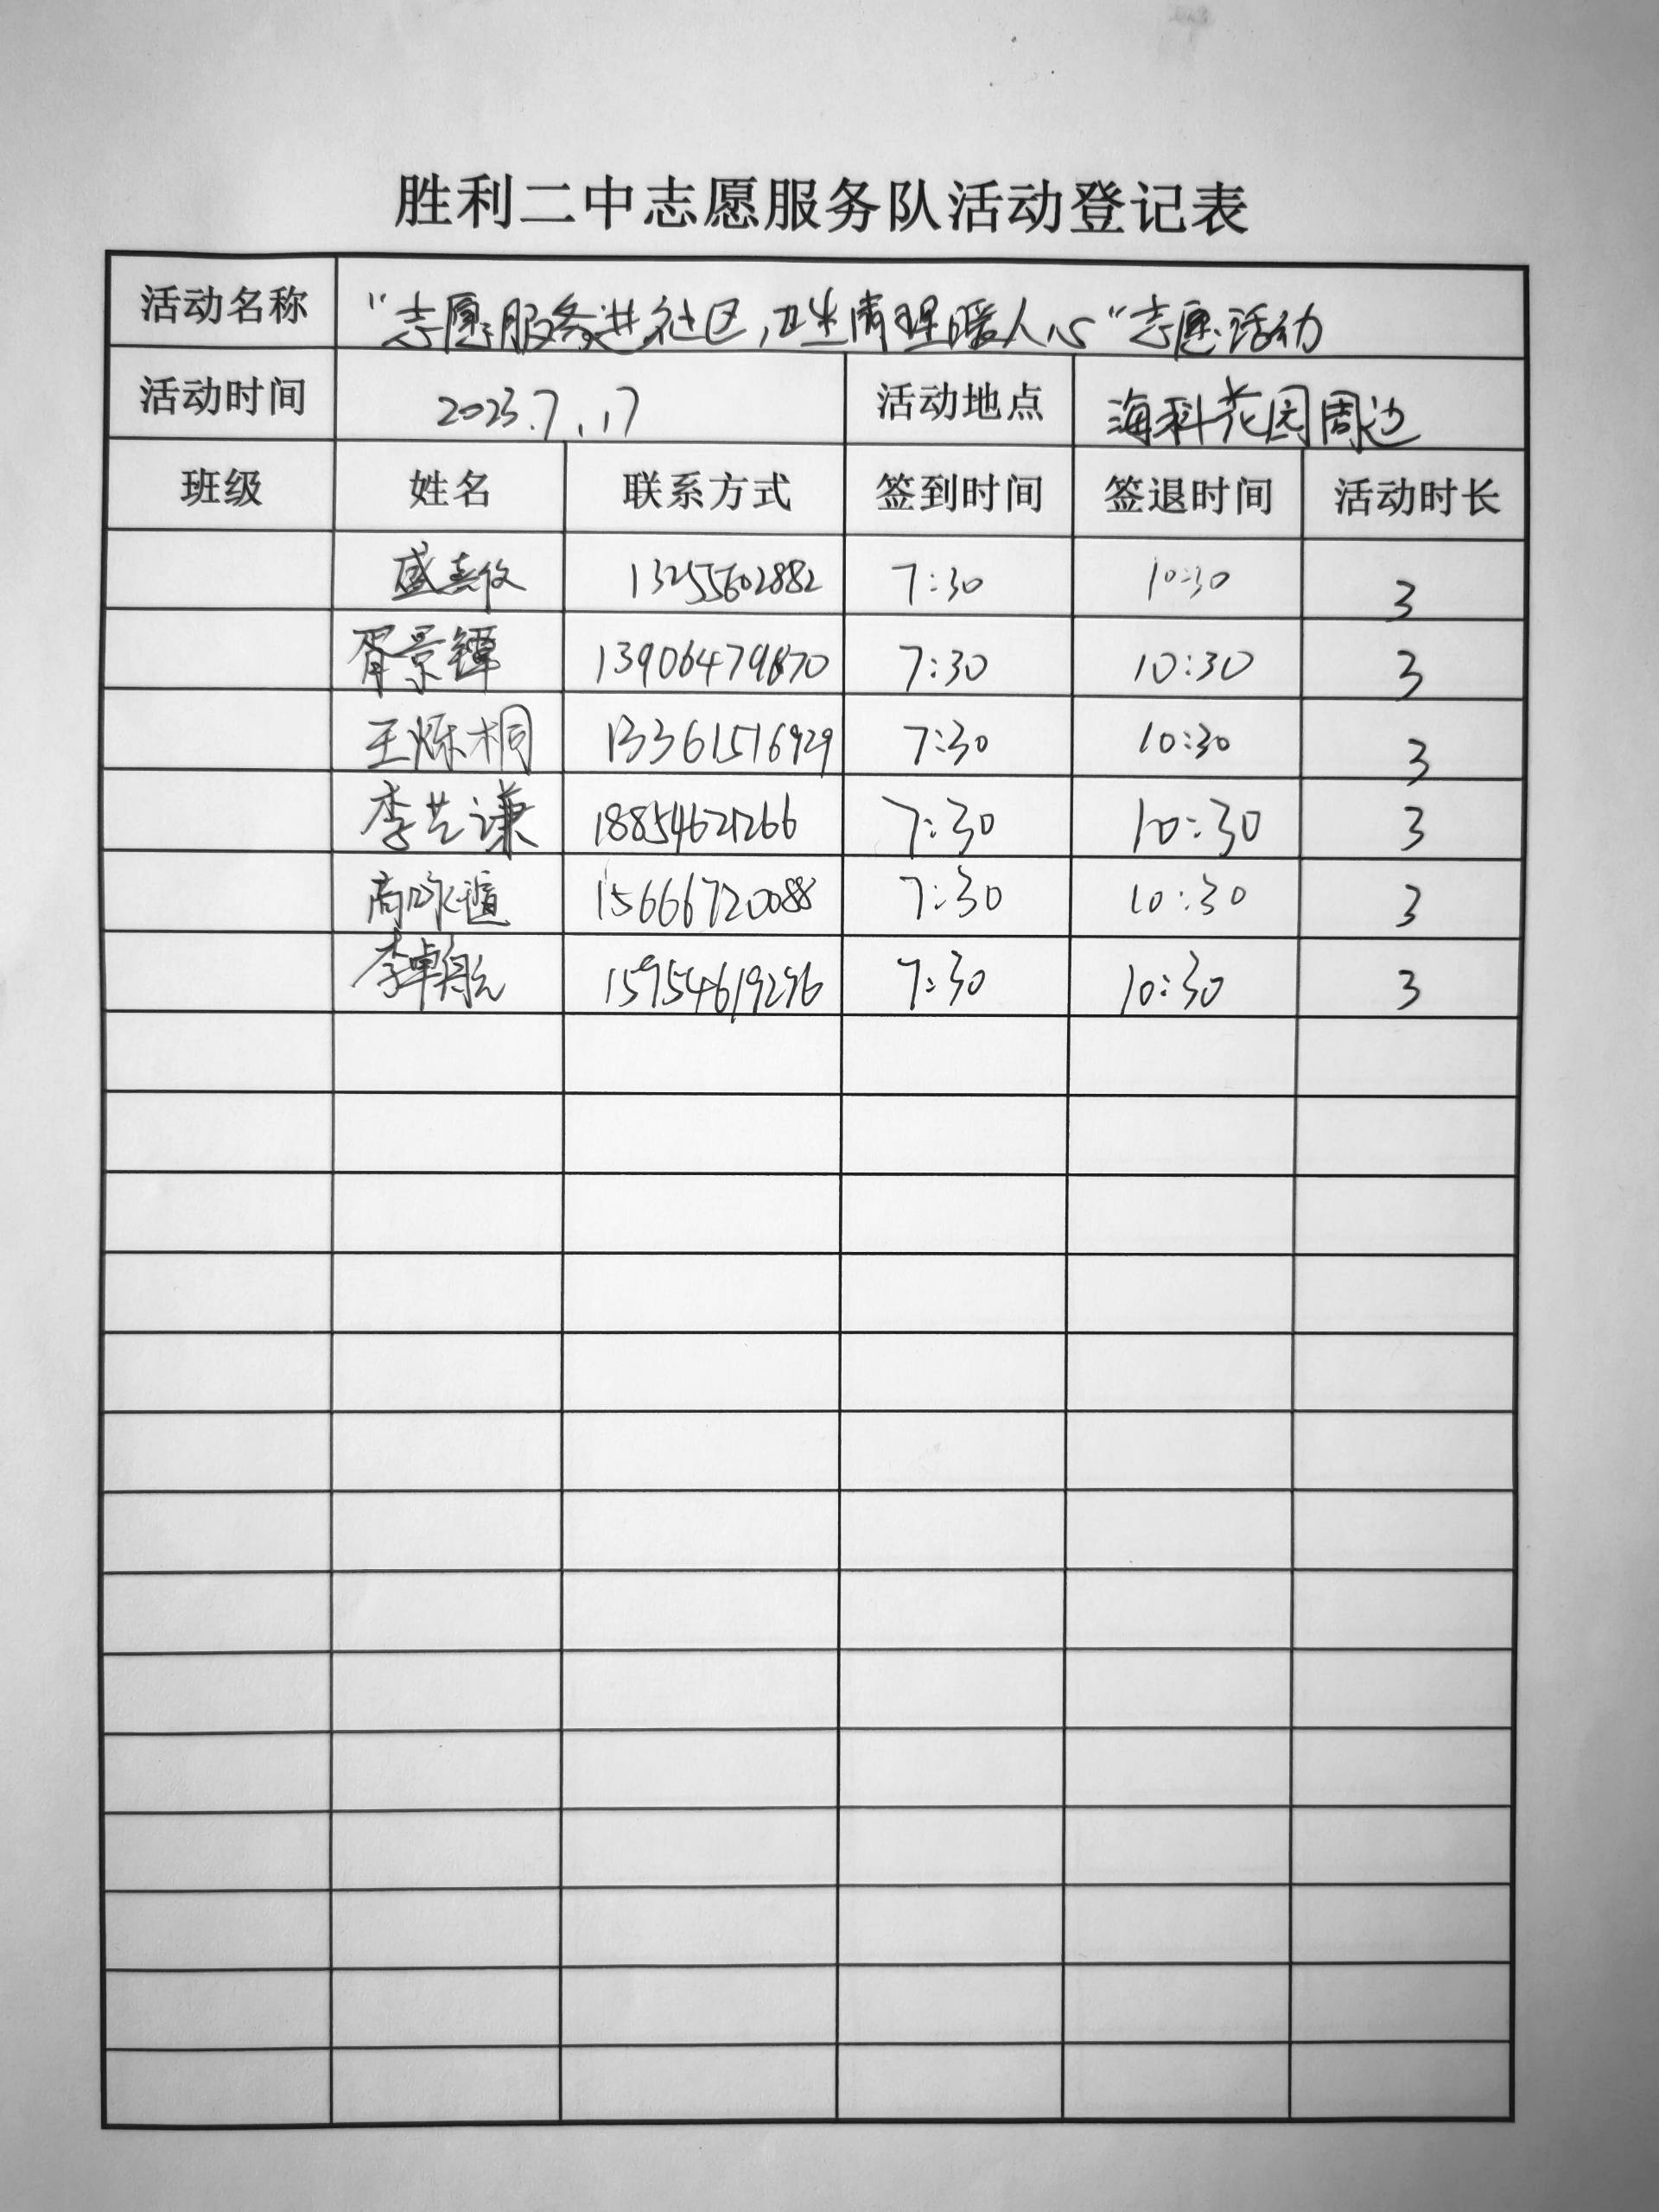 胜利二中志愿服务队活动登记表
活动名称 "志愿服务进社区，卫生清理暖人心"志愿活动
活动时间 2023.7.17 活动地点 海科花园周边
班级 姓名 联系方式 签到时间 签退时间 活动时长
盛嘉攸 13255602882 7:30 10:30 3
胥景镡 13906479870 7:30 10:30 3
王烁桐 13361516929 7:30 10:30 3
李艺谦 18854621266 7:30 10:30 3
商咏 15666720088 7:30 10:30 3
李卓航 15954619296 7:30 10:30 3